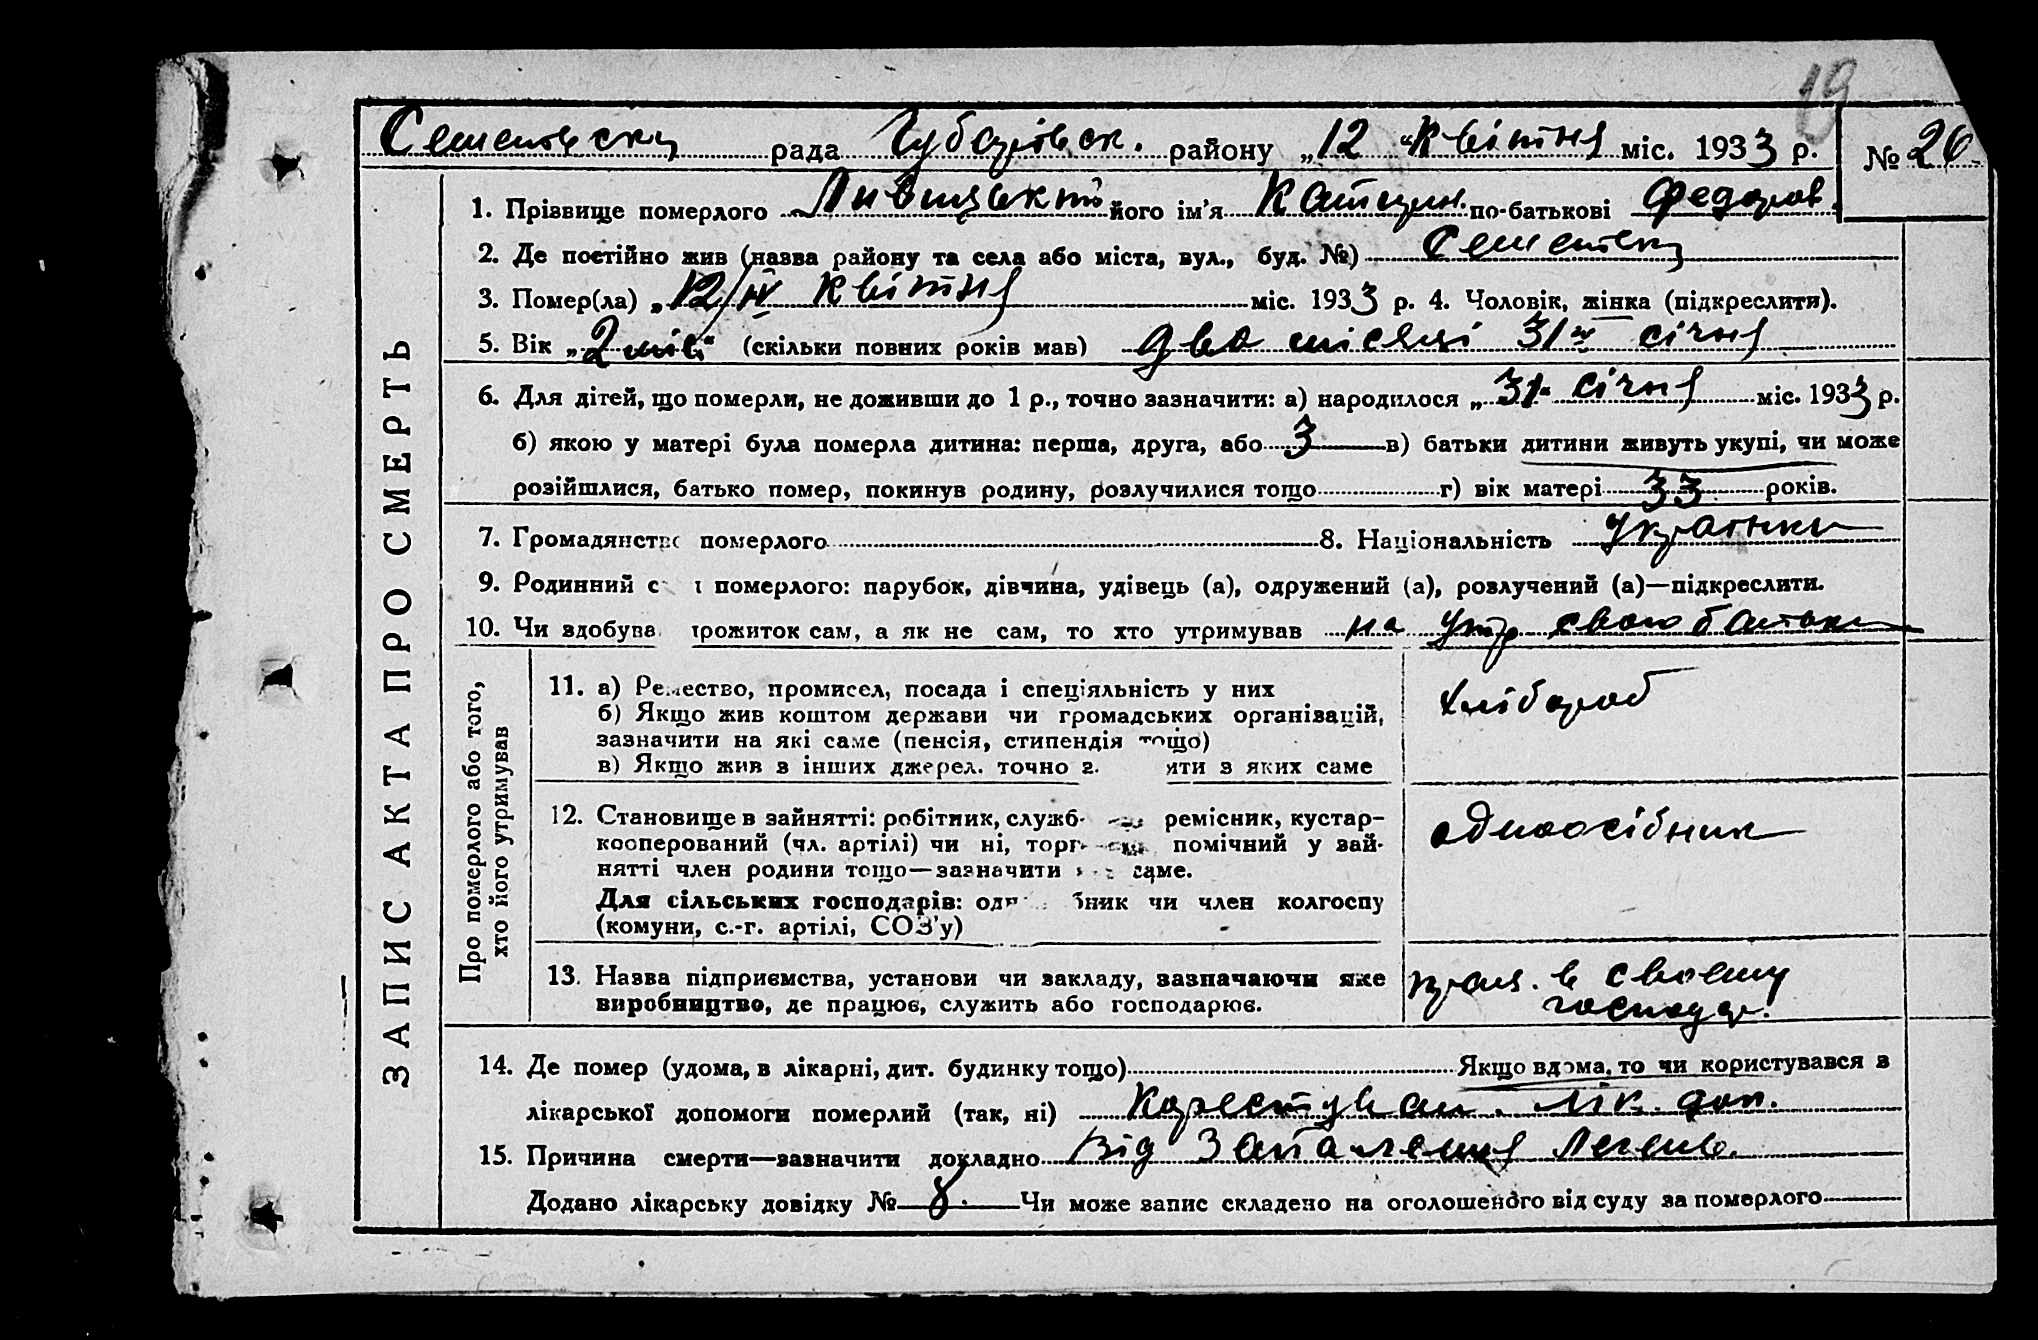 19
Семенівську рада Чубарівск. району „12 “ Квітня міс. 1933 р. № 26
1. Прізвище померлого його ім'я Катерин. по-батькові Федоров.
2. Де постійно жив (назва району та села або міста, вул., буд. №)
3. Помер(ла) „12/IV Квітня міс. 1933 р. 4. Чоловік, жінка (підкреслити).
5. Вік „2 міс“ (скільки повних років мав) два місяці 31го січня
6. Для дітей, що померли, не доживши до 1 р., точно зазначити: а) народилося „31“ січня міс. 1933 р.
б) якою у матері була померла дитина: перша, друга, або 3 в) батьки дитини живуть укупі, чи може
розійшлися, батько помер, покинув родину, розлучилися тощо г) вік матері 33 років.
7. Громадянство померлого 8. Національність Українка
9. Родинний с і померлого: парубок, дівчина, удівець (а), одружений (а), розлучений (а)—підкреслити.
10. Чи здобува прожиток сам, а як не сам, то хто утримував на утр свого батька
ЗАПИС АКТА ПРО СМЕРТЬ
Про померлого або того,
хто його утримував
11. а) Ремество, промисел, посада і спеціяльність у них
б) Якщо жив коштом держави чи громадських організацій,
зазначити на які саме (пенсія, стипендія тощо)
в) Якщо жив з інших джерел. точно з ити з яких саме
хлібороб
12. Становище в зайнятті: робітник, служб ремісник, кустар-
кооперований (чл. артілі) чи ні, торг помічний у зай-
нятті член родини тощо—зазначити саме.
Для сільських господарів: одн бник чи член колгоспу
(комуни, с.-г. артілі, СОЗ'у)
одноосібник
13. Назва підприємства, установи чи закладу, зазначаючи яке
виробництво, де працює, служить або господарює.
прац. в своєму
господар.
14. Де помер (удома, в лікарні, дит. будинку тощо) Якщо вдома, то чи користувався з
лікарської допомоги померлий (так, ні) Користувал. лік. доп.
15. Причина смерти—зазначити докладно Від Запалення легень.
Додано лікарську довідку № 8. Чи може запис складено на оголошеного від суду за померлого